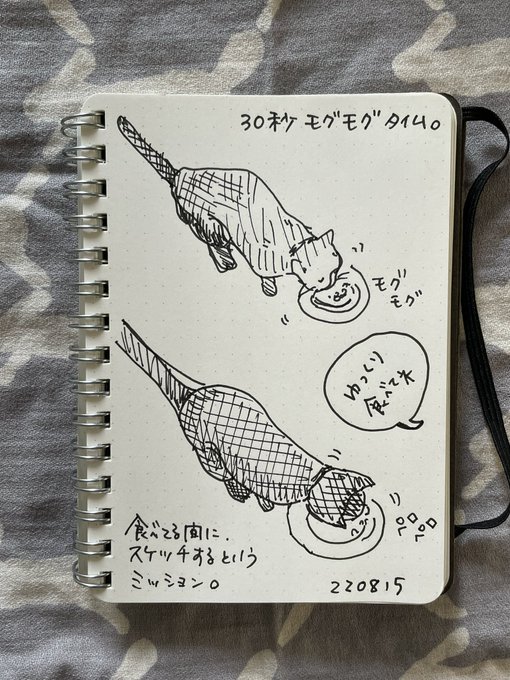 30秒 モグモグタイム。
モグ
モグ
ゆっくり
食べて
ペロ
ペロ
食べてる間に、
スケッチするという
ミッション。
220815